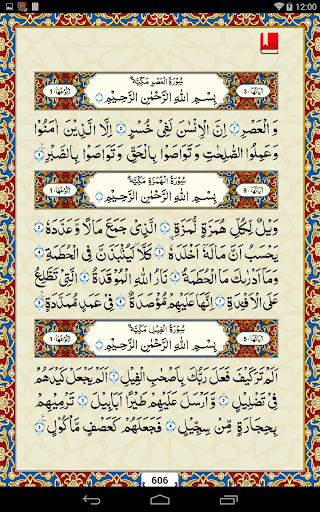 12:00
سُوْرَةُ الْعَصْرِ مَكِّيَّةٌ
اٰيَاتُهَا:3
رُكُوْعُهَا:1
بِسْمِ اللهِ الرَّحْمٰنِ الرَّحِيْمِ
وَالْعَصْرِ ۝ اِنَّ الْاِنْسَانَ لَفِيْ خُسْرٍ ۝ اِلَّا الَّذِيْنَ اٰمَنُوْا
وَعَمِلُوا الصّٰلِحٰتِ وَتَوَاصَوْا بِالْحَقِّ وَتَوَاصَوْا بِالصَّبْرِ ۝
سُوْرَةُ الْهُمَزَةِ مَكِّيَّةٌ
اٰيَاتُهَا:9
رُكُوْعُهَا:1
بِسْمِ اللهِ الرَّحْمٰنِ الرَّحِيْمِ
وَيْلٌ لِّكُلِّ هُمَزَةٍ لُّمَزَةٍ ۝ الَّذِيْ جَمَعَ مَالًا وَّعَدَّدَهٗ ۝
يَحْسَبُ اَنَّ مَالَهٗۤ اَخْلَدَهٗ ۝ كَلَّا لَيُنْۢبَذَنَّ فِي الْحُطَمَةِ ۝
وَمَاۤ اَدْرٰىكَ مَا الْحُطَمَةُ ۝ نَارُ اللهِ الْمُوْقَدَةُ ۝ الَّتِيْ تَطَّلِعُ
عَلَى الْاَفْـِٕدَةِ ۝ اِنَّهَا عَلَيْهِمْ مُّؤْصَدَةٌ ۝ فِيْ عَمَدٍ مُّمَدَّدَةٍ ۝
سُوْرَةُ الْفِيْلِ مَكِّيَّةٌ
اٰيَاتُهَا:5
رُكُوْعُهَا:1
بِسْمِ اللهِ الرَّحْمٰنِ الرَّحِيْمِ
اَلَمْ تَرَ كَيْفَ فَعَلَ رَبُّكَ بِاَصْحٰبِ الْفِيْلِ ۝ اَلَمْ يَجْعَلْ كَيْدَهُمْ
فِيْ تَضْلِيْلٍ ۝ وَّاَرْسَلَ عَلَيْهِمْ طَيْرًا اَبَابِيْلَ ۝ تَرْمِيْهِمْ
بِحِجَارَةٍ مِّنْ سِجِّيْلٍ ۝ فَجَعَلَهُمْ كَعَصْفٍ مَّاْكُوْلٍ ۝
606